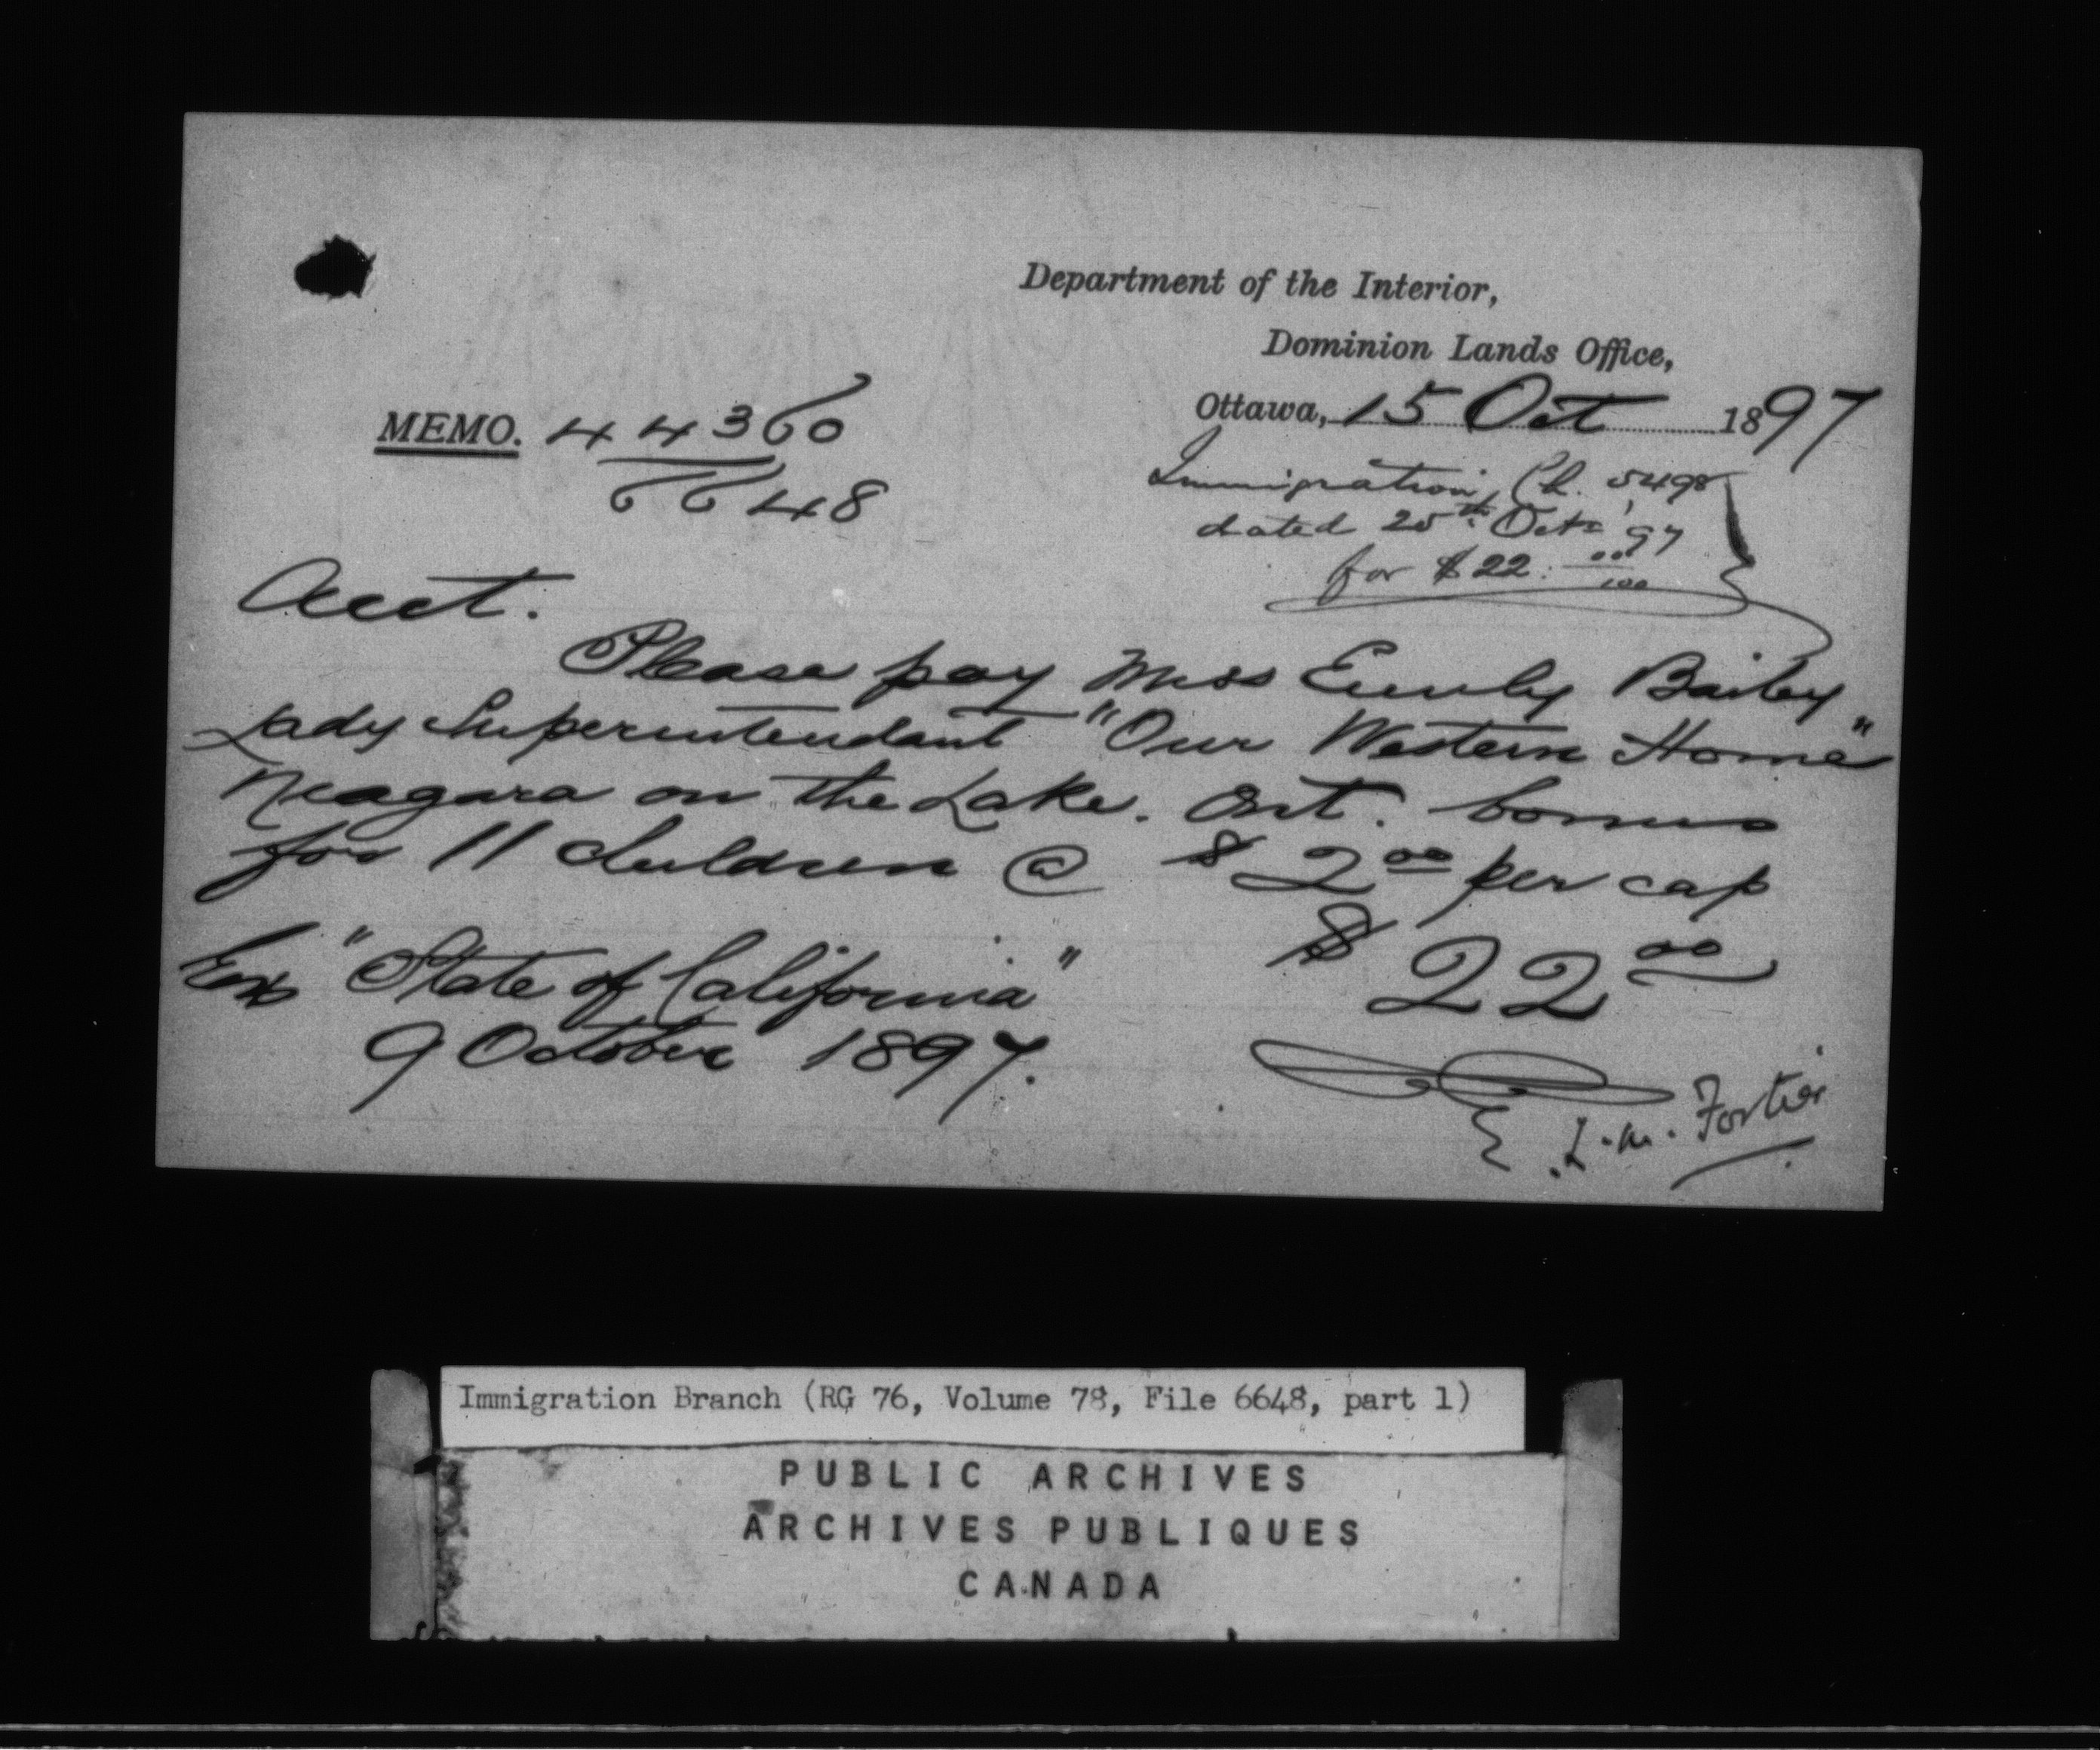 Department of the Interior,
Dominion Lands Office,
Ottawa, 15 Oct 1897
MEMO. 44360
6648
Immigration Ch. 5498
dated 25th Oct 97
for $22. 00/100
Acct.
Please pay Miss Emily Bailey
Lady Superintendant "Our Western Home"
Niagara on the Lake. Ont. bonus
for 11 children @ $2.00 per cap
$22.00
Ex "State of California"
9 October 1897.
L. M. Fortier
Immigration Branch (RG 76, Volume 78, File 6648, part 1)
PUBLIC ARCHIVES
ARCHIVES PUBLIQUES
CANADA